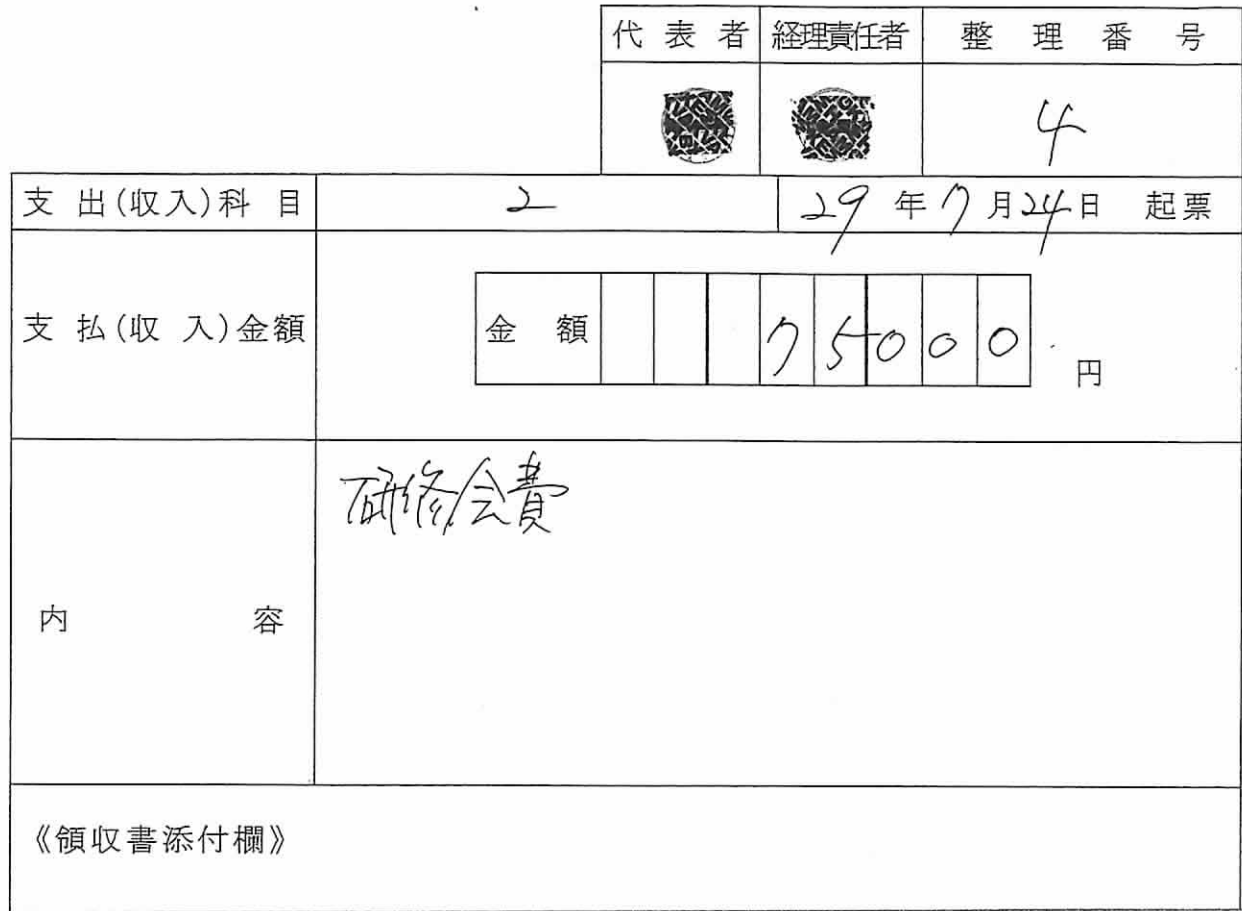 代表者 経理責任者 整理番号
4
支出(収入)科目 2 29年7月24日 起票
支払(収入)金額 金額 75000 円
研修会費
内容
《領収書添付欄》